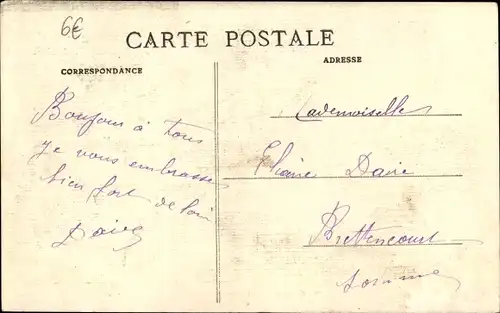 6€
CARTE POSTALE
CORRESPONDANCE
ADRESSE
Bonjour à tous
je vous embrasse
bien fort de loin
Mademoiselle
Daire
Brettencourt
Somme